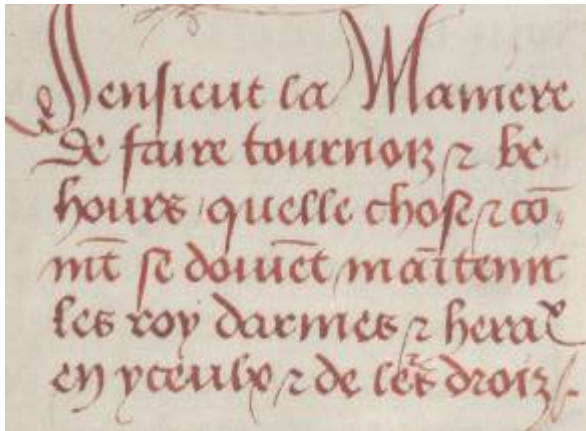 Jensieut la Maniere
de faire tournoiz ⁊ be
hours quelle chose ⁊ cō
mt̄ se doiuēt maītenir
les roy darmes ⁊ herax
en yceulx ⁊ de lers droiz